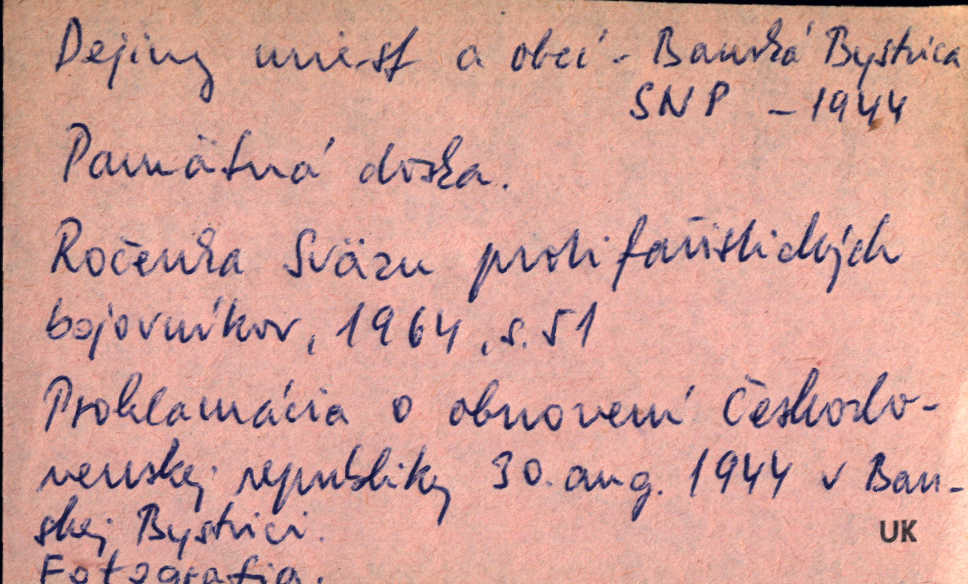 Dejiny miest a obcí - Banská Bystrica
SNP - 1944
Pamätná doska.
Ročenka Sväzu protifašistických
bojovníkov, 1964, s. 51
Proklamácia o obnovení Českoslo-
venskej republiky 30. aug. 1944 v Ban-
skej Bystrici.
UK
Fotografia.